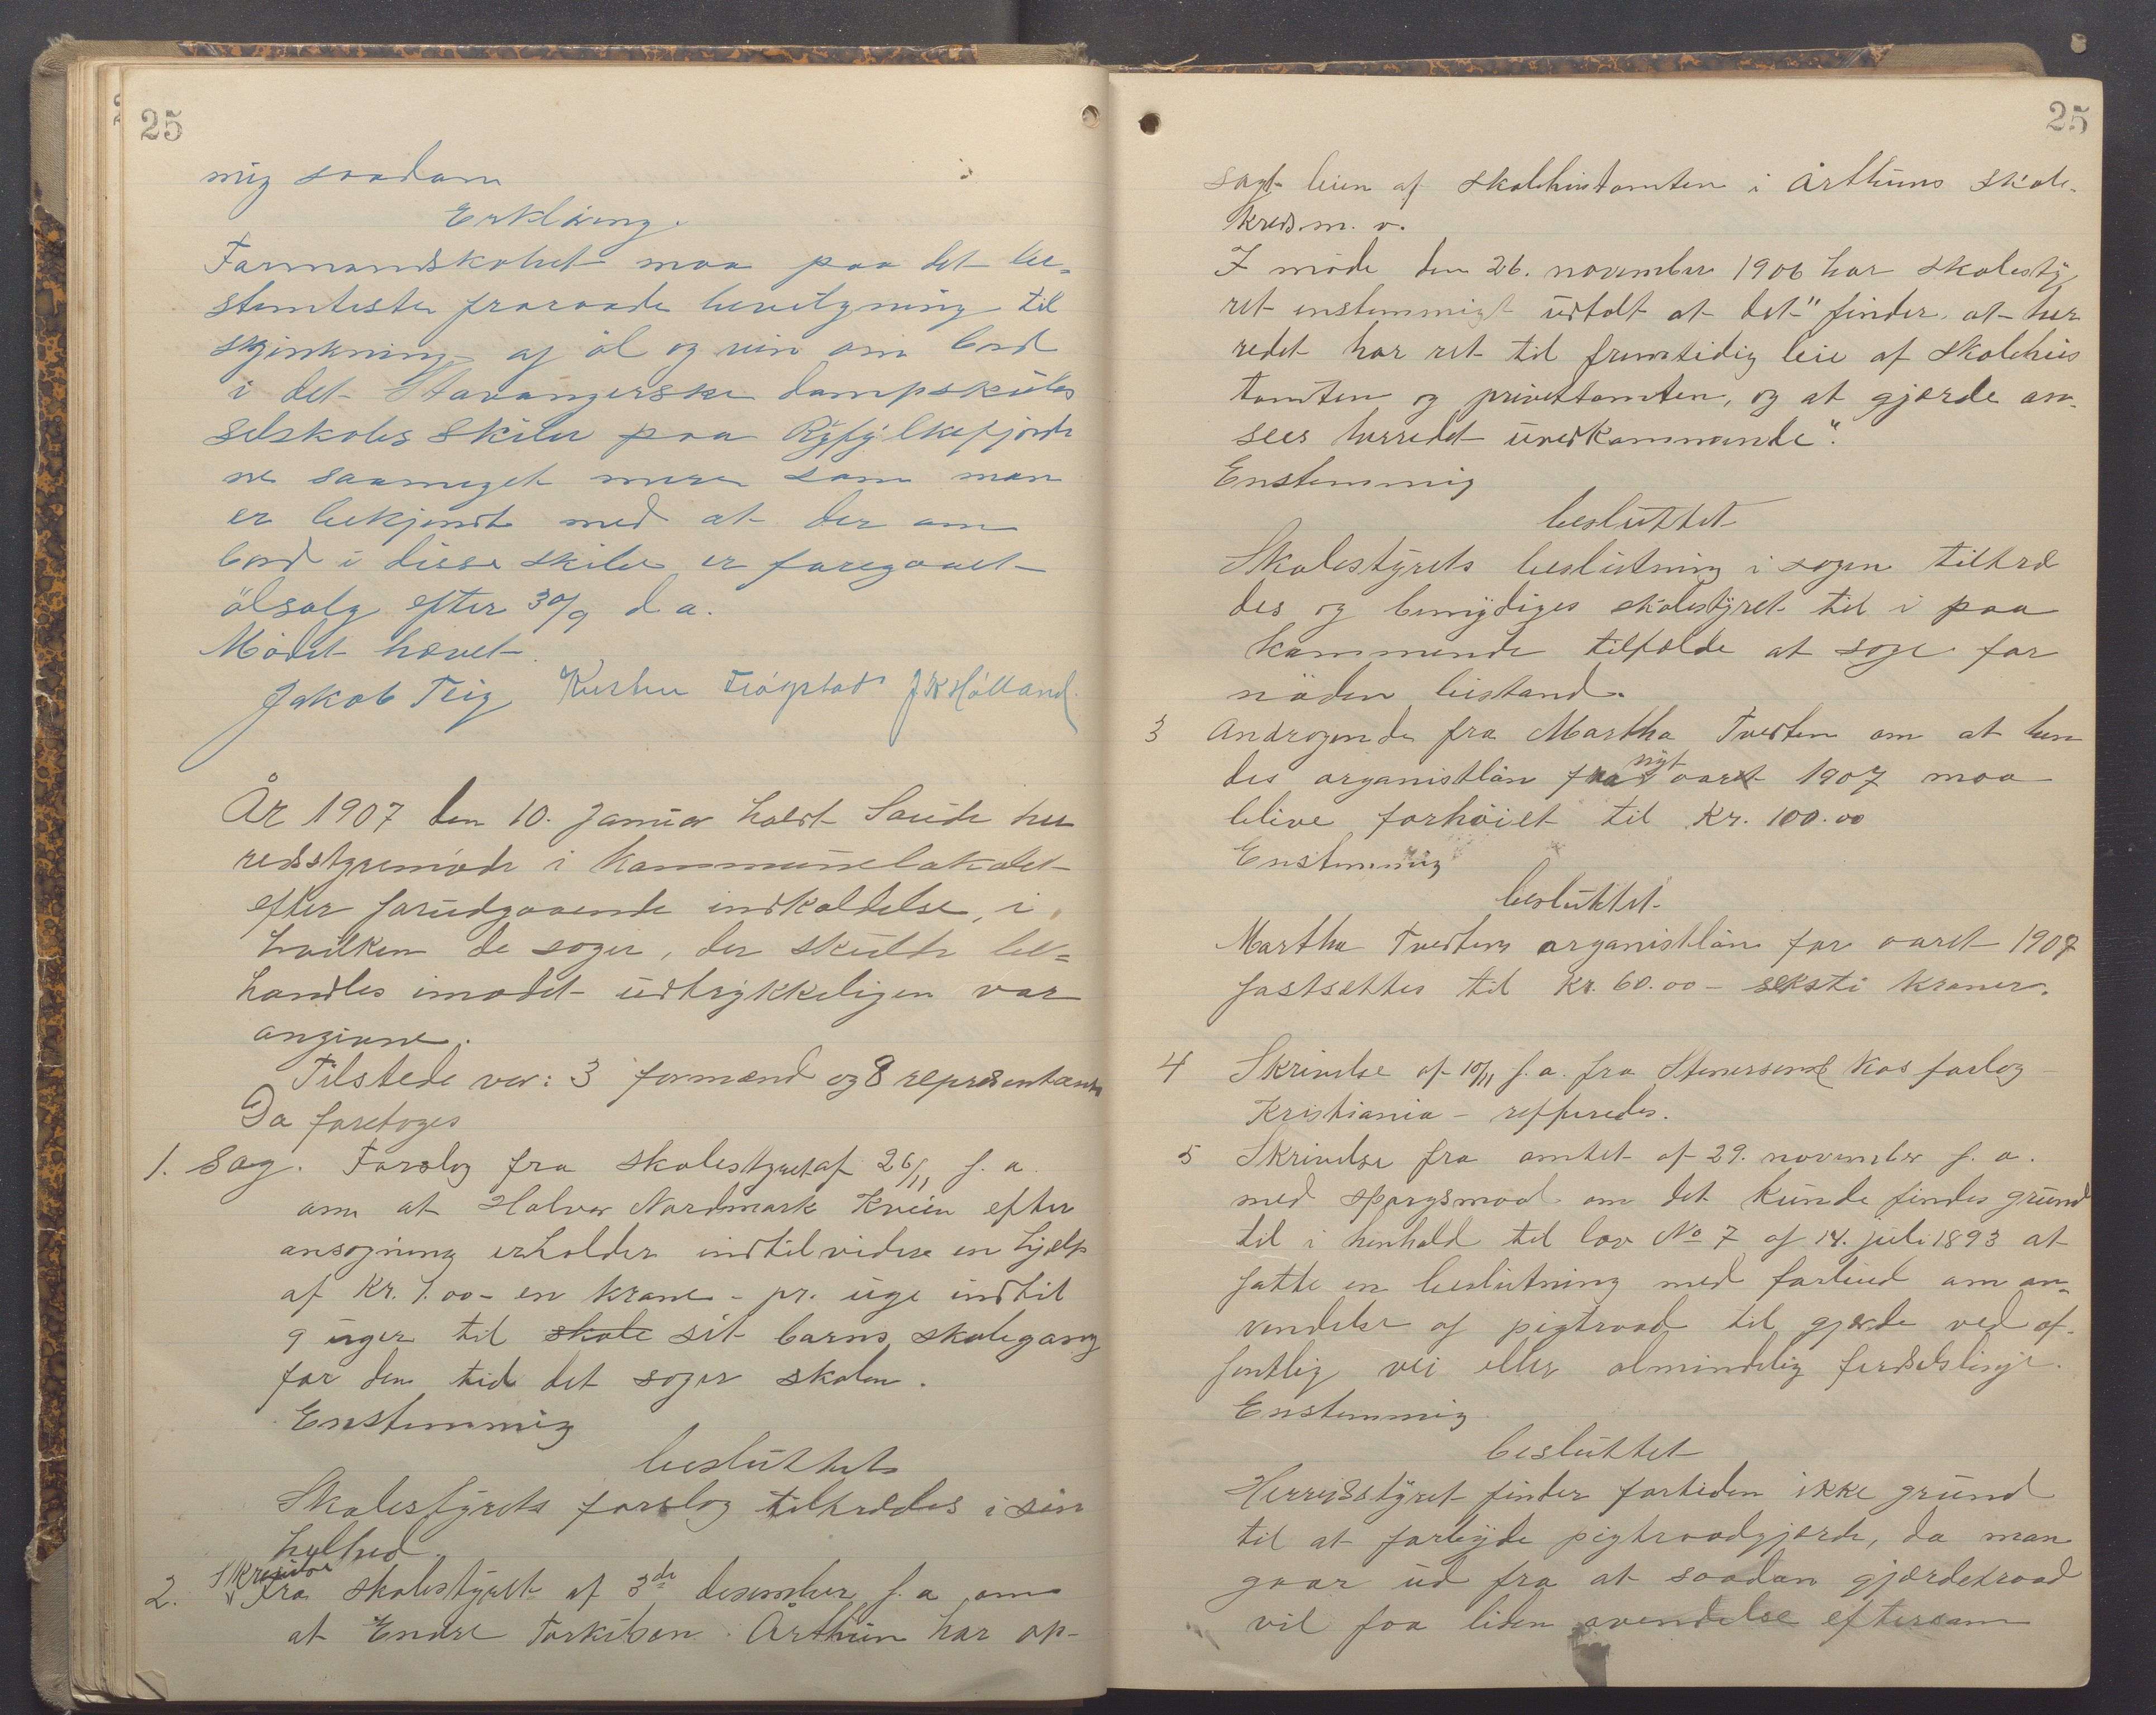 25
mig saadan
Erklæring.
Formandskabet maa paa det be-
stemteste fraraade bevilgning til
skjænkning af øl og vin om bord
i det Stavangerske dampskibs
selskabs skibe paa Ryfylkefjorde
ne saameget mere som man
er bekjendt med at der om
bord i disse skibe er foregaaet
ølsalg efter 30/9 d a.
Mødet hævet.
Jakob Teig Fløgstad J K Hølland
År 1907 den 10. januar holdt Saude her
redsstyremøde i kommunelokalet
efter forudgaaende indkaldelse, i
hvilken de sager, der skulde be=
handles i mødet udtrykkeligen var
angivne.
Tilstede var: 3 formænd og 8 repræsentanter
Da foretoges
1. Sag. Forslag fra skolestyret af 26/11 f. a.
om at Halvor Nordmark Kvien efter
ansøgning erholder indtil videre en hjælp
af Kr. 1.00 - en krone - pr. uge indtil
9 uger til skole sit barns skolegang
for den tid det søger skolen.
Enstemmig
besluttet
Skolestyrets forslag tiltrædes i sin
helhed.
2. Skrivelse fra skolestyret af 3de desember f. a om
at Endre Torkilsen Årthun har op-
25
sagt leien af skolehustomten i Årthuns skole-
kreds m. v.
I møde den 26. november 1906 har skolesty
ret enstemmigt udtalt at det "finder at her
redet har ret til fremtidig leie af skolehus
tomten og privettomten, og at gjærde an-
sees herredet uvedkommende".
Enstemmig
besluttet
Skolestyrets beslutning i sagen tiltræ
des og bemyndiges skolestyret til i paa
kommende tilfælde at søge for
nøden bistand.
3 Andragende fra Martha Tveden om at hen
des organistløn fra nyt aaret 1907 maa
blive forhøiet til Kr. 100.00
Enstemmig
besluttet
Martha Tvedens organistløn for aaret 1907
fastsættes til Kr. 60.00 - seksti kroner.
4 Skrivelse af 10/11 f. a. fra Stenersen & Kos forlag
Kristiania - refferedes.
5 Skrivelse fra amtet af 29. november f. a.
med spørgsmaal om det kunde findes grund
til i henhold til lov No 7 af 14. juli 1893 at
fatte en beslutning med forbud om an-
vendelse af pigtraad til gjærde ved of-
fentlig vei eller almindelig ferdselslinje.
Enstemmig
besluttet
Herredsstyret finder fortiden ikke grund
til at forbyde pigtraadgjærde, da man
gaar ud fra at saadan gjærdetraad
vil faa liden avendelse eftersom